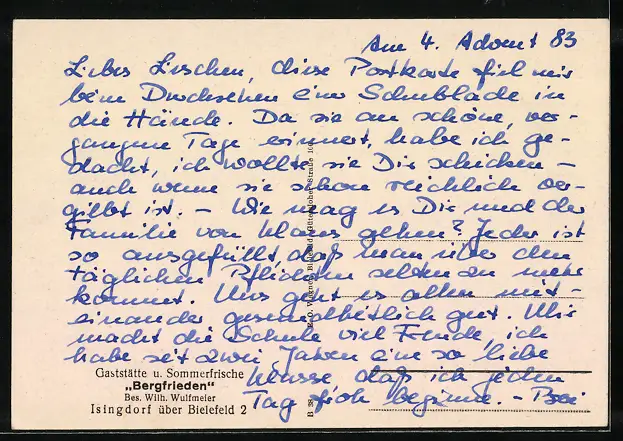 Am 4. Advent 83
Liebes Lieschen, diese Postkarte fiel mir
beim Durchsehen einer Schublade in
die Hände. Da sie an schöne, ver-
gangene Tage erinnert, habe ich ge-
dacht, ich wollte sie Dir schicken –
auch wenn sie schon reichlich ver-
gilbt ist. – Wie mag es Dir und der
Familie von Klaus gehen? Jeder ist
so ausgefüllt, daß man über den
täglichen Pflichten selten zu mehr
kommt. Uns geht es allen mit-
einander gesundheitlich gut. Mir
macht die Schule viel Freude, ich
habe seit zwei Jahren eine so liebe
Klasse, daß ich jeden
Tag froh beginne. – Bei
Gaststätte u. Sommerfrische
„Bergfrieden"
Bes. Wilh. Wulfmeier
Isingdorf über Bielefeld 2
Bielefeld, Gütersloher Straße